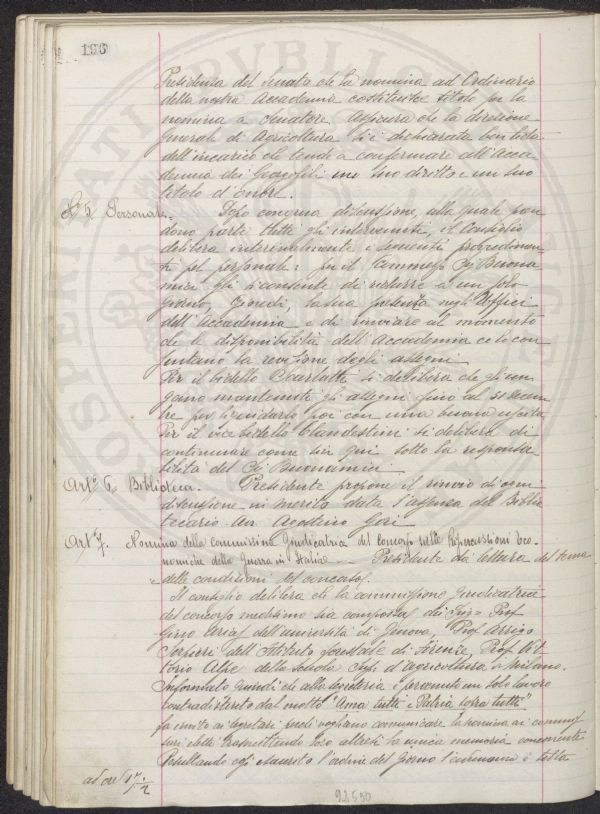 196
Presidenza del Senato che la nomina ad Ordinario
della nostra Accademia costituisce titolo per la
nomina a Senatore. Assicura che la direzione
generale di Agricoltura si è dichiarata ben lieta
dell'incarico che tende a confermare all'Acca-
demia dei Georgofili un suo diritto e un suo
titolo d'onore.
Personale. Dopo congrua discussione, alla quale pren
dono parte tutti gli intervenuti, il Consiglio
delibera i seguenti provvedimen
ti pel personale: per il Commesso Buona
mici gli si consente di ridurre a un solo
giorno, la sua presenza negli uffici
dell'Accademia e di rinviare al momento
che le disponibilità dell'Accademia ce lo con
sentano la revisione degli assegni.
Per il bidello si delibera che gli ven
gano mantenuti gli assegni fino al 31 decem
bre per liquidarlo poi con una buona uscita.
Per il vice bidello Clandestini si delibera di
continuare come sin qui sotto la responsa-
bilità del Buonamici.
Art.º 6 Biblioteca. Presidente propone il rinvio di ogni
discussione in merito data l'assenza del Biblio
tecario Agostino Gori
Art.º 7. Nomina della commissione Giudicatrice del Concorso sulle Ripercussioni Eco-
nomiche della Guerra in Italia. Presidente dà lettura del tema
e delle condizioni del concorso.
Il consiglio delibera che la commissione giudicatrice
del concorso medesimo sia composta dei Prof
dell'università di Genova, Prof Arrigo
Serpieri dell'Istituto forestale di Firenze, Prof Vit
torio Alpe della scuola Sup. d'agricoltura di Milano.
Informato quindi che alla segreteria è pervenuto un solo lavoro
contradistinto dal motto "Ama tutti e Patria sopra tutti"
fa invito ai segretari perché vogliano comunicare la nomina ai commis
sari eletti trasmettendo loro altresì la unica memoria concorrente
Risultando così esaurito l'ordine del giorno l'adunanza è tolta
ad ore 17 ½
92550